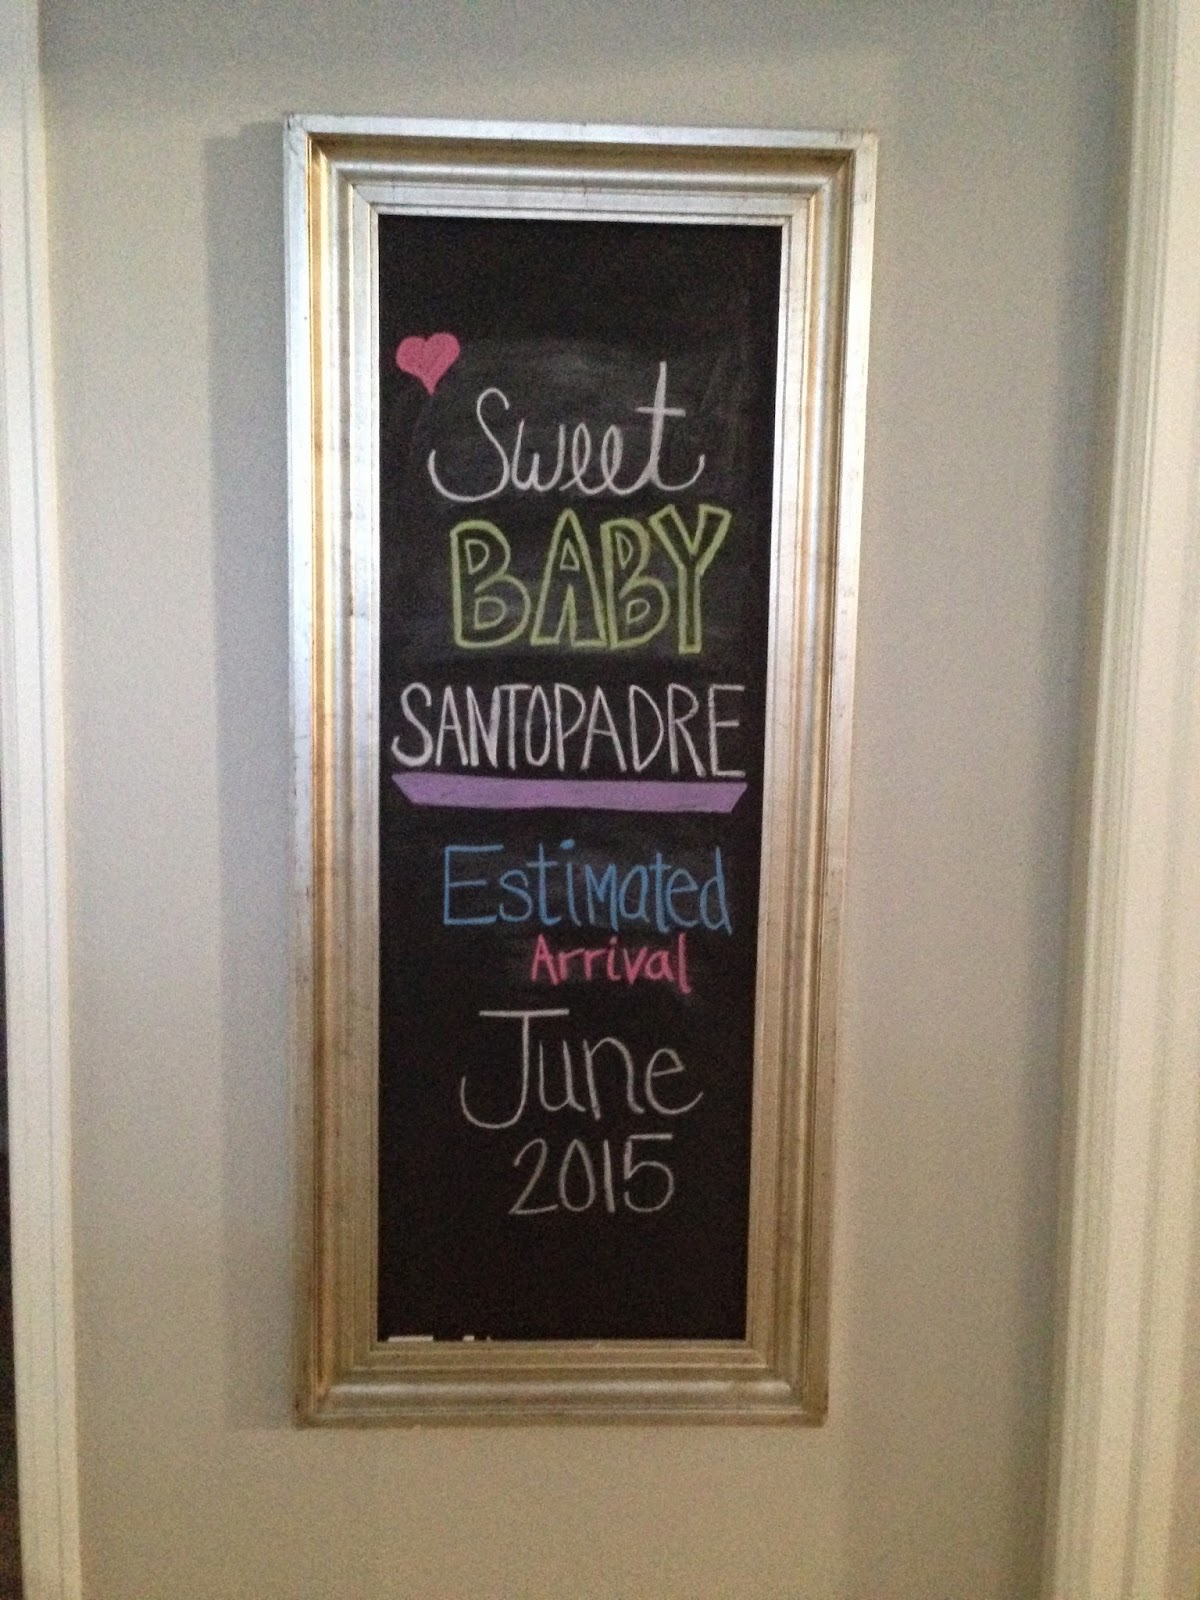 Sweet
BABY
SANTOPADRE
Estimated
Arrival
June
2015